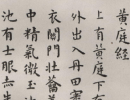 黄庭經
上有黄庭下有
外出入丹田審
衣關門壯籥蓋
中精氣微玉
池有士服赤